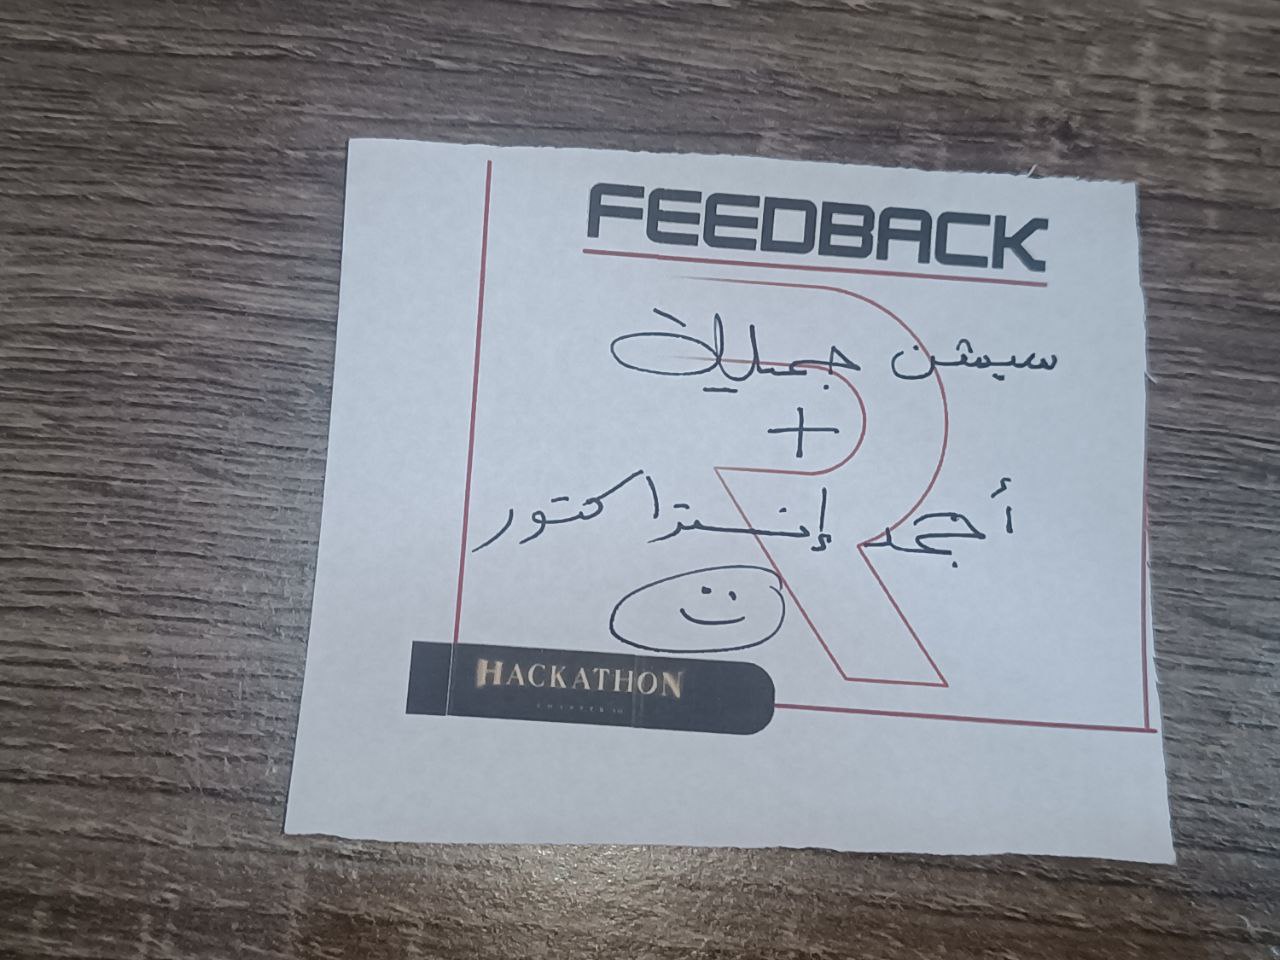 FEEDBACK
سيشن جميلة
+
أجمد إنستراكتور
HACKATHON